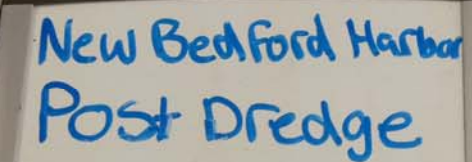 New Bedford Harbor
Post Dredge